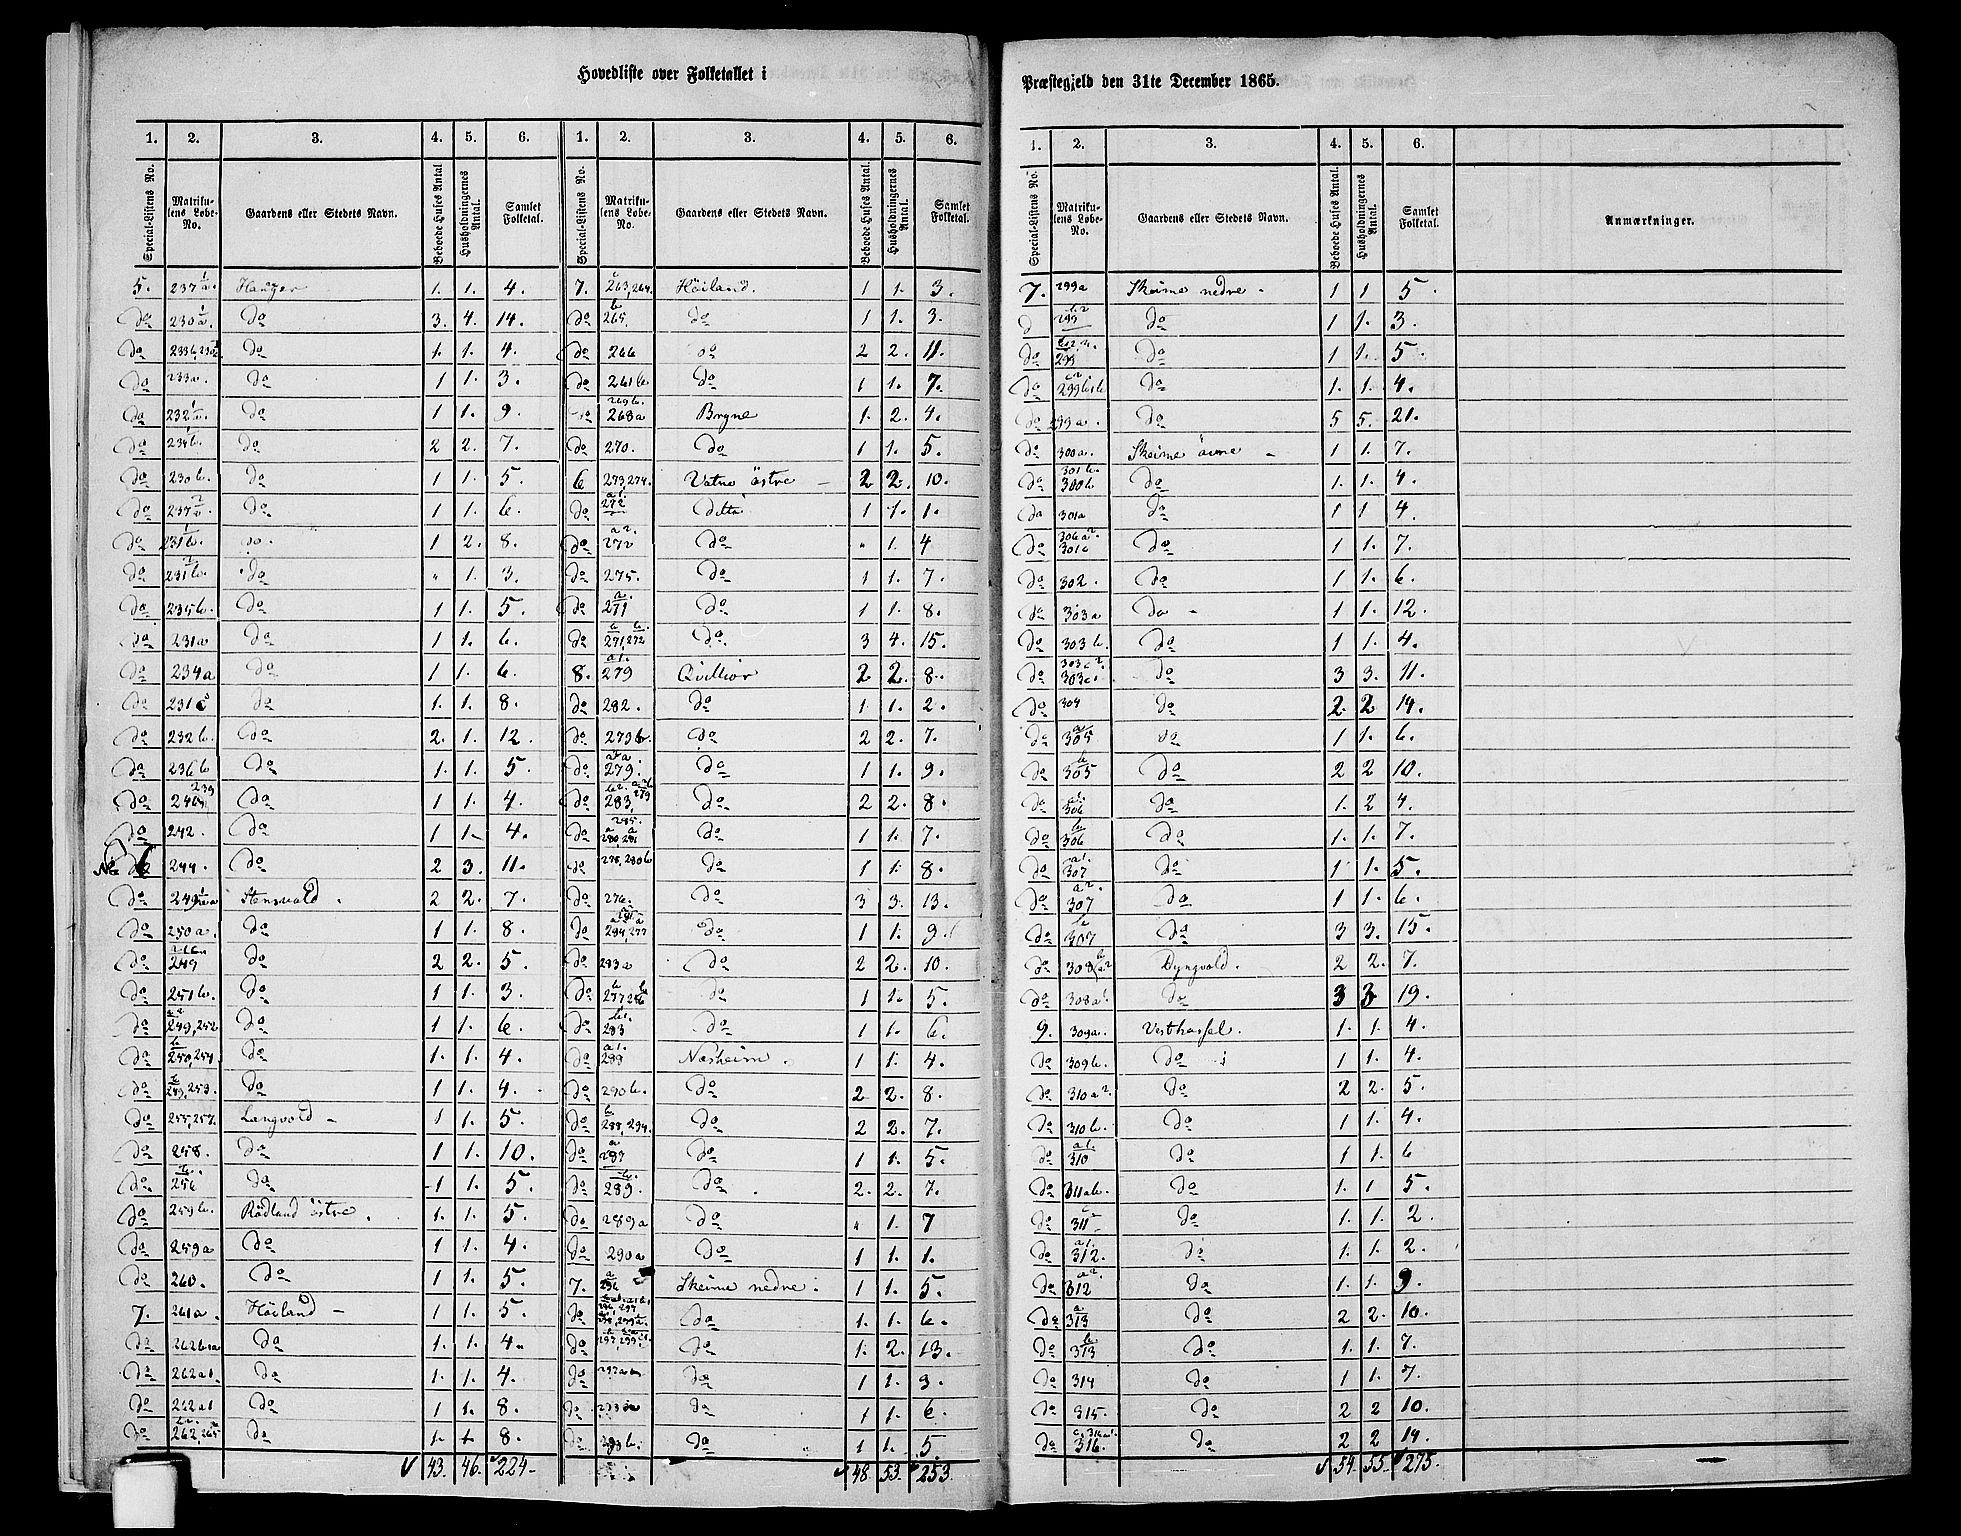 Hovedliste over Folketallet i
Præstegjeld den 31te December 1865.
1. 2. 3. 4. 5. 6. 1. 2. 3. 4. 5. 6.
Special-Listens No. Matrikulens Løbe-No. Gaardens eller Stedets Navn. Beboede Huses Antal. Husholdningernes Antal. Samlet Folketal. Special-Listens No. Matrikulens Løbe-No. Gaardens eller Stedets Navn. Beboede Huses Antal. Husholdningernes Antal. Samlet Folketal.
5. 1. 1. 4. 7. 263, 264. Höiland. 1 1. 3.
do do 3. 4. 14. do 265. do 1 1. 3.
do do 1. 1. 4. do 266 do 2 2. 11.
do 233a. do 1 1. 3. do 261b. do 1 1. 7.
do do 1 1. 9. do 268a Bryne 1. 2. 4.
do 234b. do 2 2. 7. do 270. do 1 1. 5.
do 230b. do 1 1. 5. 6 273, 274. Vatne östre 2 2. 10.
do do 1 1. 6. do 272 Ditto 1 1. 1.
do 231b. do. 1 2. 8. do 272 do " 1. 4
do 231b. do " 1. 3. do 275. do 1 1. 7.
do 235b. do 1 1. 5. do 271 do 1 1. 8.
do 231a do 1 1. 6. do 271, 272 do. 3 4. 15.
do 234a do 1 1. 6. 8. 279 2 2. 8.
do 231c do 1. 1. 8. do 282. do 1. 1. 2.
do 232b. do 2. 1. 12. do 279b. do 2 2. 7.
do 236b do 1. 1. 5. do 279. do 1 1. 9.
do do 1 1. 4. do 283, 279 do 2 2. 8.
do 242. do 1 1. 4. do do 1 1. 7.
No 6 244. do 2 3. 11. do 278, 280b do 1 1. 8.
do Stensvold. 2 2. 7. do 276. do 3 3. 13.
do 250a. do 1 1. 8. do do 1 1. 9.
do 249 do 2 2. 5. do 283a do 2 2. 10.
do 251b. do 1 1. 3. do do 1 1. 5.
do 249, 252 do 1 1. 6. do 283 do 1 1. 6.
do 250, 254. do 1. 1. 4. do Nesheim. 1 1. 4.
do 249, 253. do 1 1. 4. do 290b. do 2 2. 8.
do 255, 257. Langvold 1 1. 5. do 288, 294. do 2 2. 7.
do 258. do 1 1. 10. do do 1 1. 5.
do 256 do 1 1. 5. do 289. do. 2. 2. 7.
do 259b. Rödland östre. 1. 1. 5. do 289a do " 1. 7
do 259a do 1 1. 4. do 290a do 1 1. 1.
do 260. do 1 1. 5. 7. 296 Skeime nedre. 1 1. 5.
7. 261a. Höiland 1 1. 5. do do 1. 1. 6.
do do 1. 1. 4. do do 1. 2. 13.
do 262a1. do 1. 1. 4. do do 1 1. 9.
do 262a1 do 1 1. 8. do do 1 1. 6.
do 262, 265 do 1. 1 8. do do 1 1. 5.
43. 46. 224. 48. 53. 253.
1. 2. 3. 4. 5. 6.
Special-Listens No. Matrikulens Løbe-No. Gaardens eller Stedets Navn. Beboede Huses Antal. Husholdningernes Antal. Samlet Folketal. Anmærkninger.
7. 299a Skeime nedre. 1 1 5.
d 299 do 1 1. 3.
do 299 do 1 1. 5.
do do 1. 1. 4.
do 299a. do 5 5. 21.
do 300a. Skeime övre 1 1. 7.
do 301b. 300b do 1. 1. 4.
do 301a do 1 1 4.
do do 1 1. 7.
do 302. do 1 1. 6.
do 303a do 1 1. 12.
do 303b. do 1 1. 4.
do 303c2. 303c1 do 3 3. 11.
do 304 do 2 2 14.
do 305 do 1 1. 6.
do 305 do 2 2 10.
do 306 do 1. 2 4.
do 306 do 1. 1. 7.
do 307 do 1 1. 5.
do 307 do 1 1. 6.
do 307 do 3 3. 15.
do Dyngvold. 2 2. 7.
do 308a1. do 3 3 19.
9. 309a. Vesthassel. 1. 1. 4.
do 309b. do 1 1. 4.
do 310a2. do 2 2. 5.
do 310b. do 1 1. 4.
do 310 do 1 1. 6
do do 1. 1 5.
do 311 do 1. 1. 2.
do 312. do 1. 1. 2.
do 312 do 1. 1. 9.
do 313 do 2 2. 10.
do 313 do 1. 1. 7.
do 314 do 1 1. 7.
do 315. do 2 2 10.
do 316. do 2 2 14.
54. 55. 275.